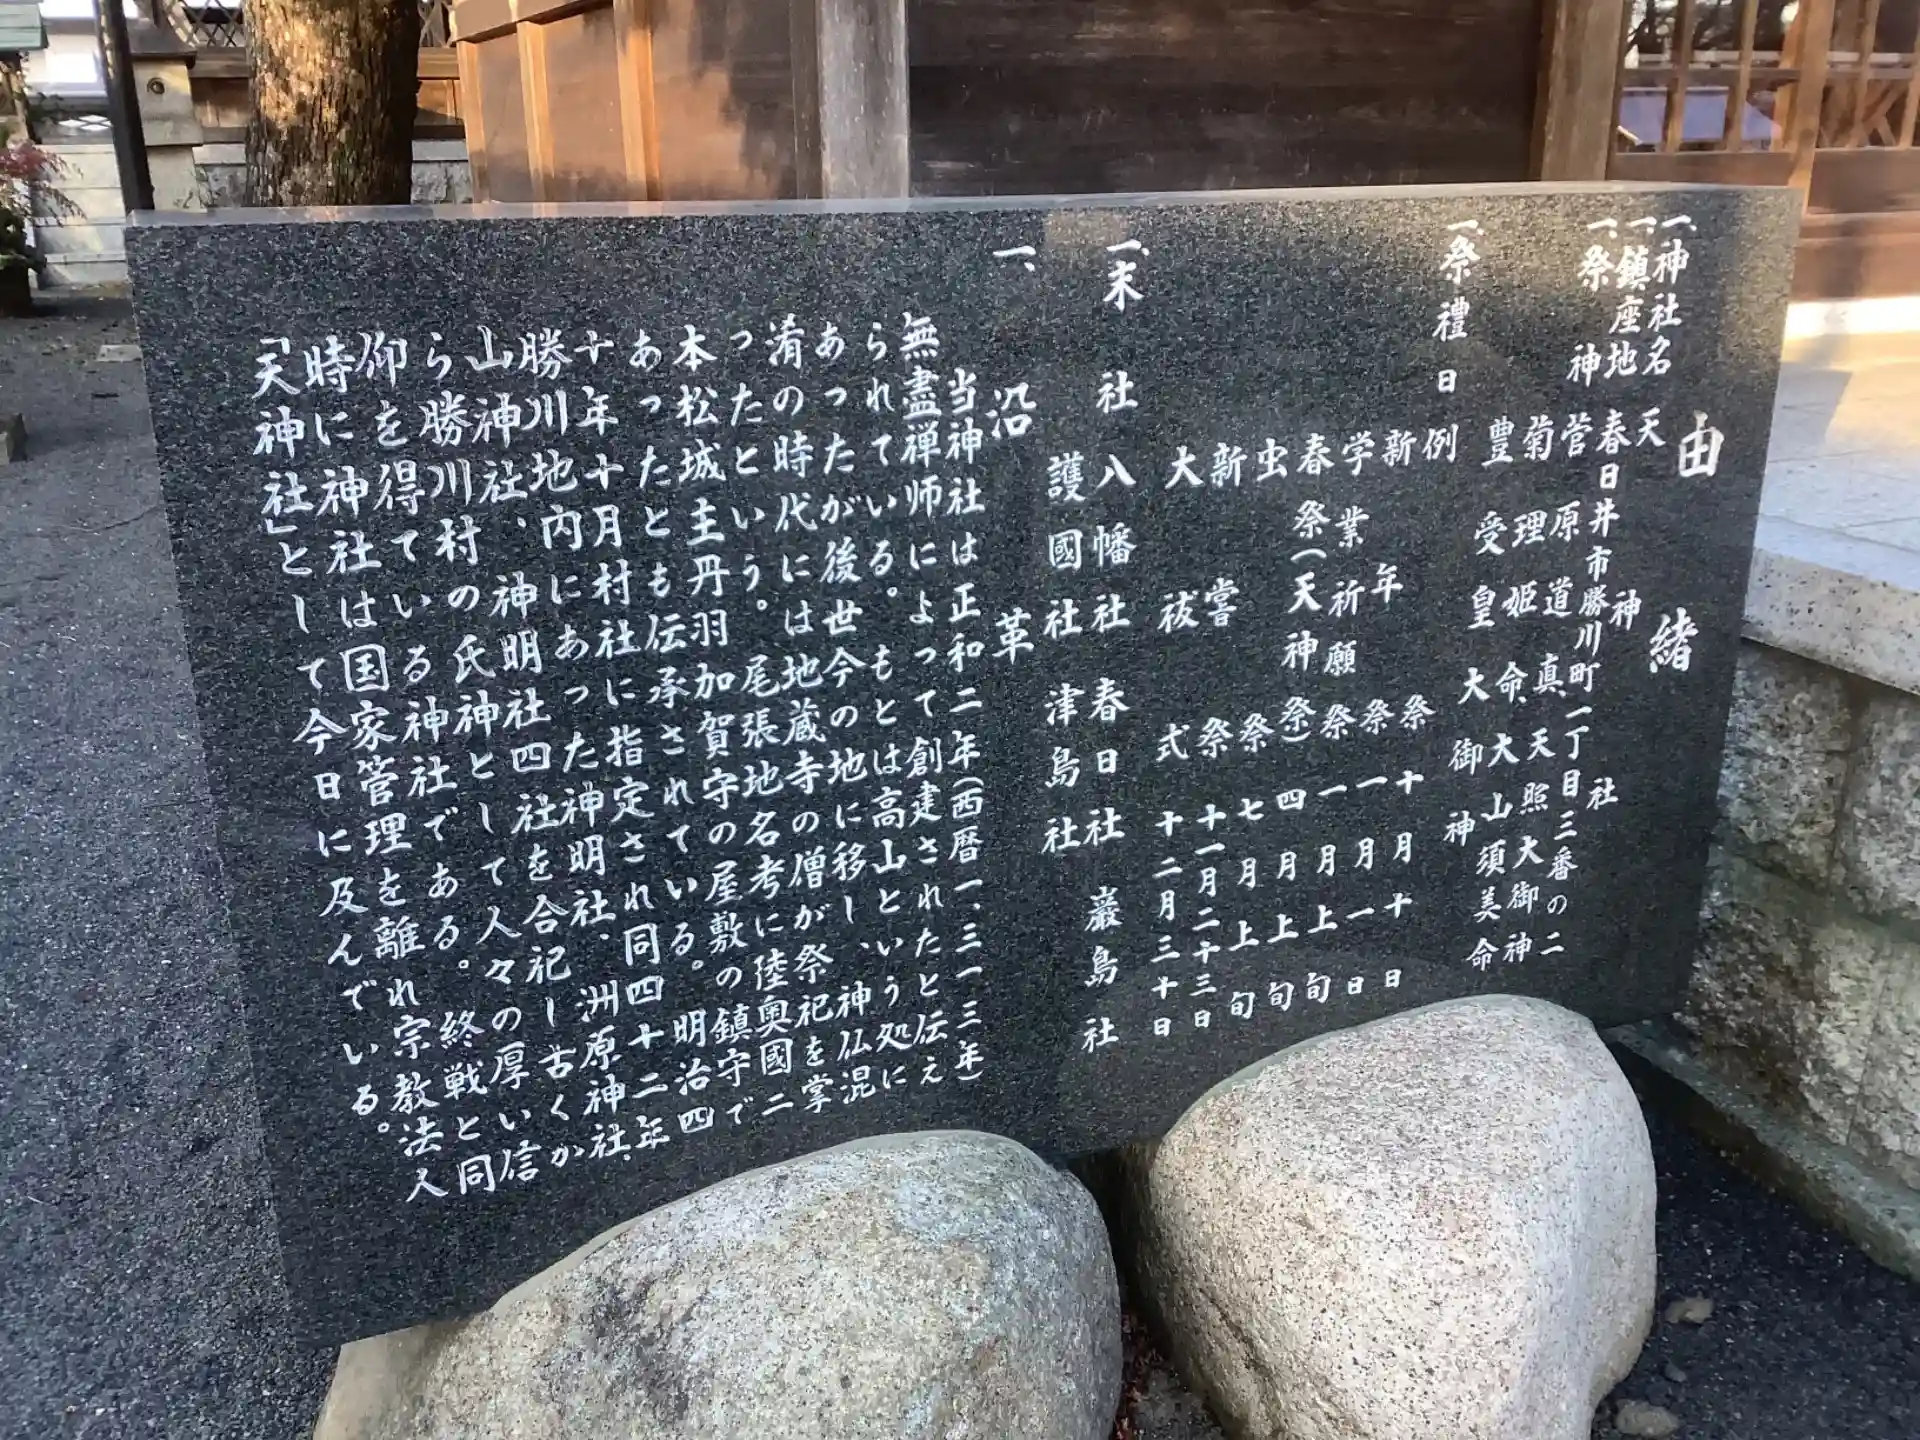 由緒
一、神社名 天神社
一、鎮座地 春日井市勝川町一丁目三番の二
一、祭神 菅原道真、天照大御神
菊理姫命、大山須美命
豊受皇大御神
一、祭禮日 例祭 十月十日
新年祭 一月一日
学業祈願祭 一月上旬
春祭(天神祭) 四月上旬
虫祭 七月上旬
新嘗祭 十一月二十三日
大祓式 十二月三十日
一、末社 八幡社 春日社 巌島社
護國社 津島社
一、沿革
当神社は正和二年(西暦一、三一三年)
無盡禅师によって創建されたと伝え
られている。もとは高山という処に
あったが後世今の地に移し、神仏混
淆の時代には地蔵寺の僧が祭祀を掌
ったという。尾張地名考に陸奥國二
本松城主丹羽加賀守の屋敷の鎮守で
あったとも伝承されている。明治四
十年十月村社に指定され同四十二年
勝川地内にあった神明社、洲原神社、
山神社、神明社四社を合祀し古くか
ら勝川村の氏神として人々の厚い信
仰を得ている神社である。終戦と同
時に神社は国家管理を離れ宗教法人
「天神社」として今日に及んでいる。